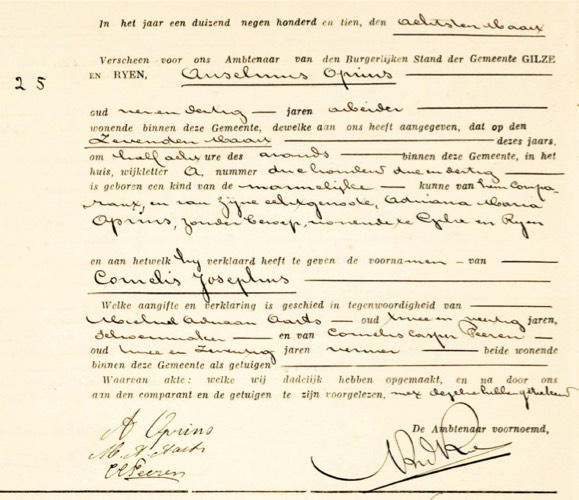 In het jaar een duizend negen honderd en tien, den achtsten Maart
Verscheen voor ons Ambtenaar van den Burgerlijken Stand der Gemeente GILZE
25
EN RYEN, Anselmus Oprins
oud vier en dertig jaren arbeider
wonende binnen deze Gemeente, dewelke aan ons heeft aangegeven, dat op den
Zevenden Maart dezes jaars,
om half acht ure des avonds binnen deze Gemeente, in het
huis, wijkletter A, nummer driehonderd drie en dertig
is geboren een kind van de mannelijke kunne van hem Compa-
rant, en van zijne echtgenoote, Adriana Maria
Oprins, zonder beroep, wonende te Gilze en Ryen
en aan hetwelk hy verklaard heeft te geven de voornamen van
Cornelis Josephus
Welke aangifte en verklaring is geschied in tegenwoordigheid van
Adriaan Aarts oud twee en veertig jaren,
schoenmaker en van Cornelis Casper Peeren
oud twee en Zeventig jaren beide wonende
binnen deze Gemeente als getuigen
Waarvan akte: welke wij dadelijk hebben opgemaakt, en na door ons
aan den comparant en de getuigen te zijn voorgelezen, met dezelve hebben geteekend
De Ambtenaar voornoemd,
A Oprins
M. A. Aarts
CC Peeren